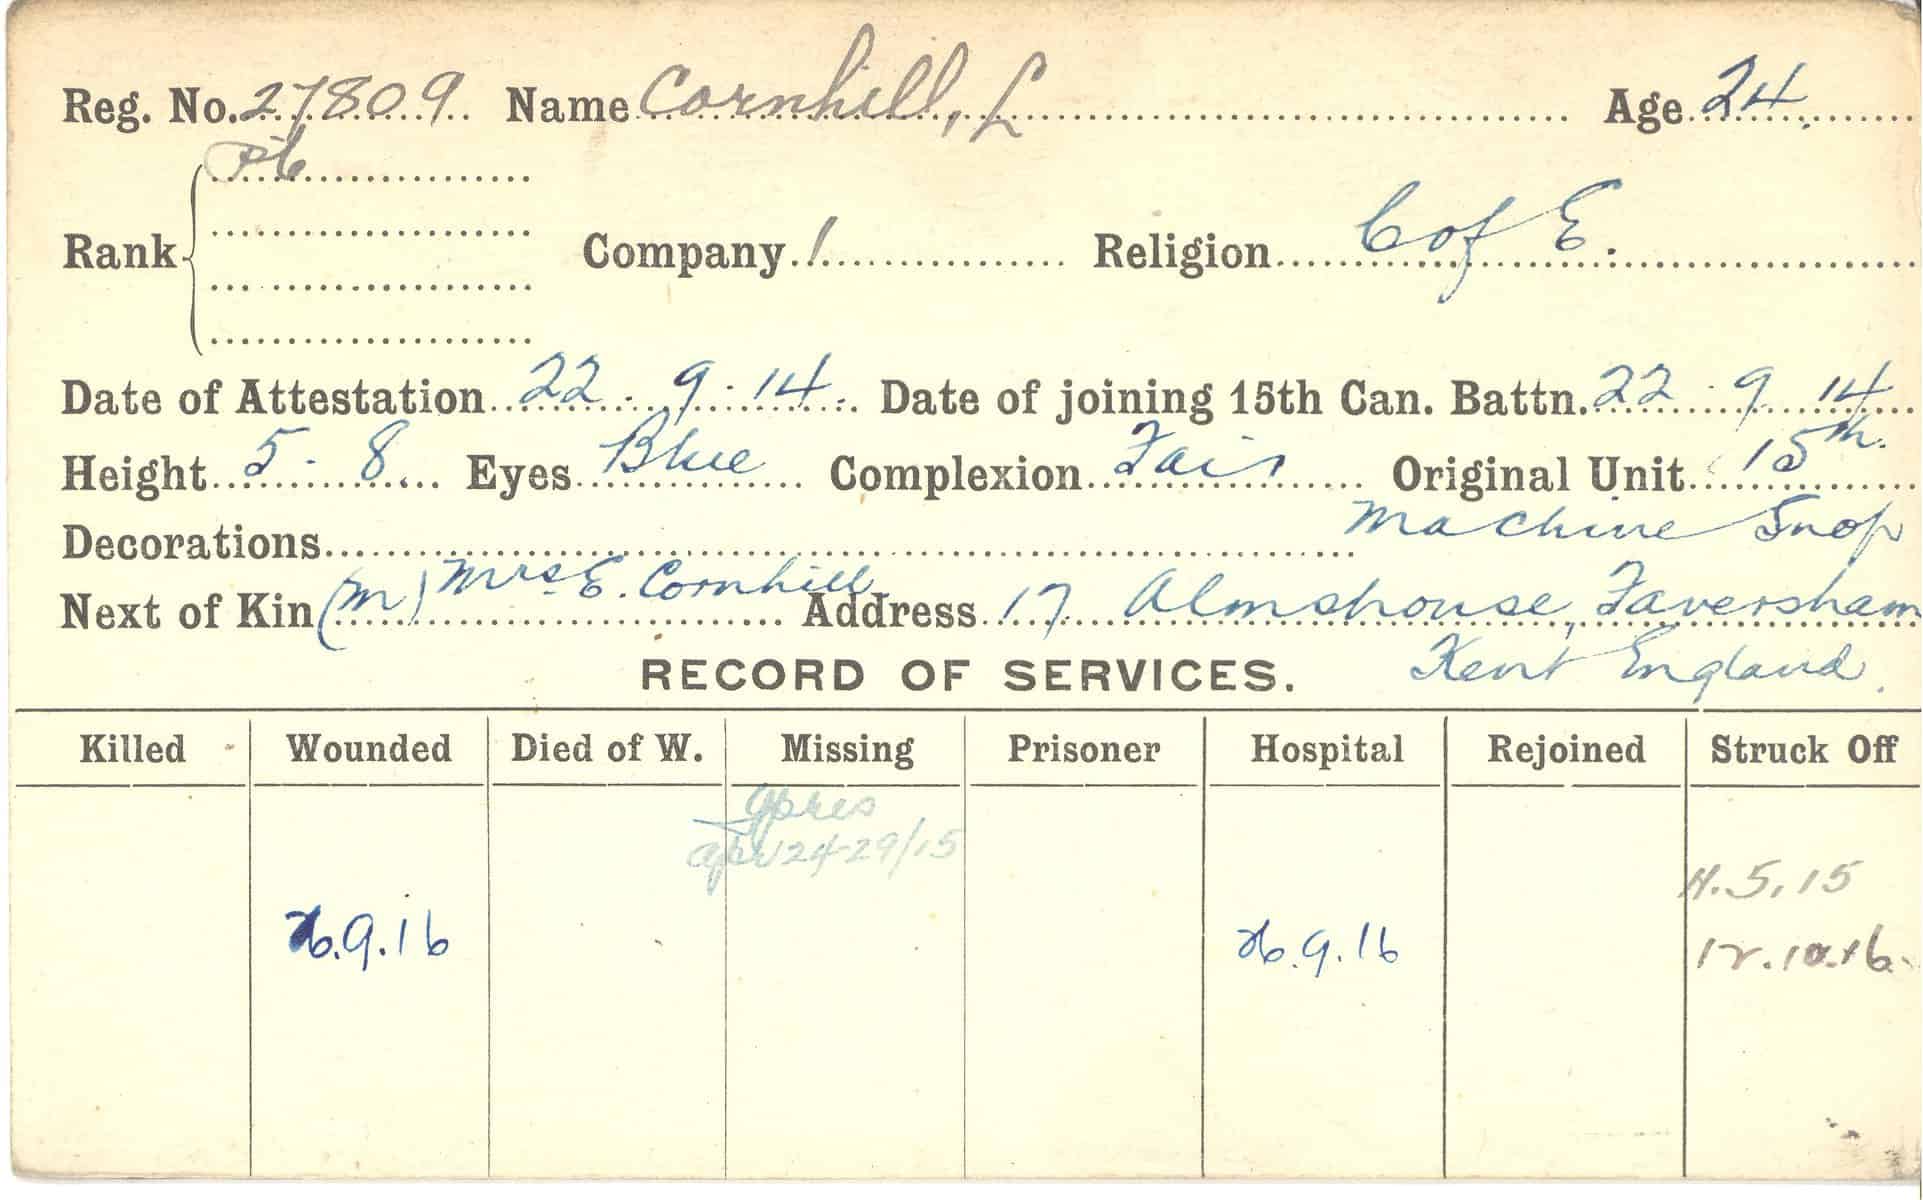 Reg. No. 27809 Name Cornhill, L Age 24
Pte
Rank Company 1 Religion C of E.
Date of Attestation 22 . 9 . 14 Date of joining 15th Can. Battn. 22 . 9 14
Height 5 - 8 Eyes Blue Complexion Fair Original Unit 15th
Decorations Machine
Next of Kin (M) Mrs E. Cornhill Address 17 Almshouse, Faversham
Kent England.
RECORD OF SERVICES.
Killed Wounded Died of W. Missing Prisoner Hospital Rejoined Struck Off
Ypres
Apr 24-29/15
4.5.15
26.9.16 26.9.16 12.10.16.